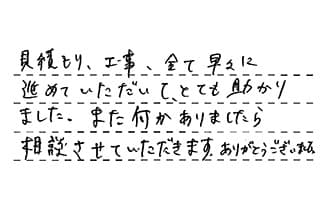 見積もり、工事、全て早々に
進めていただいて、とても助かり
ました。また何かありましたら
相談させていただきます。ありがとうございました。